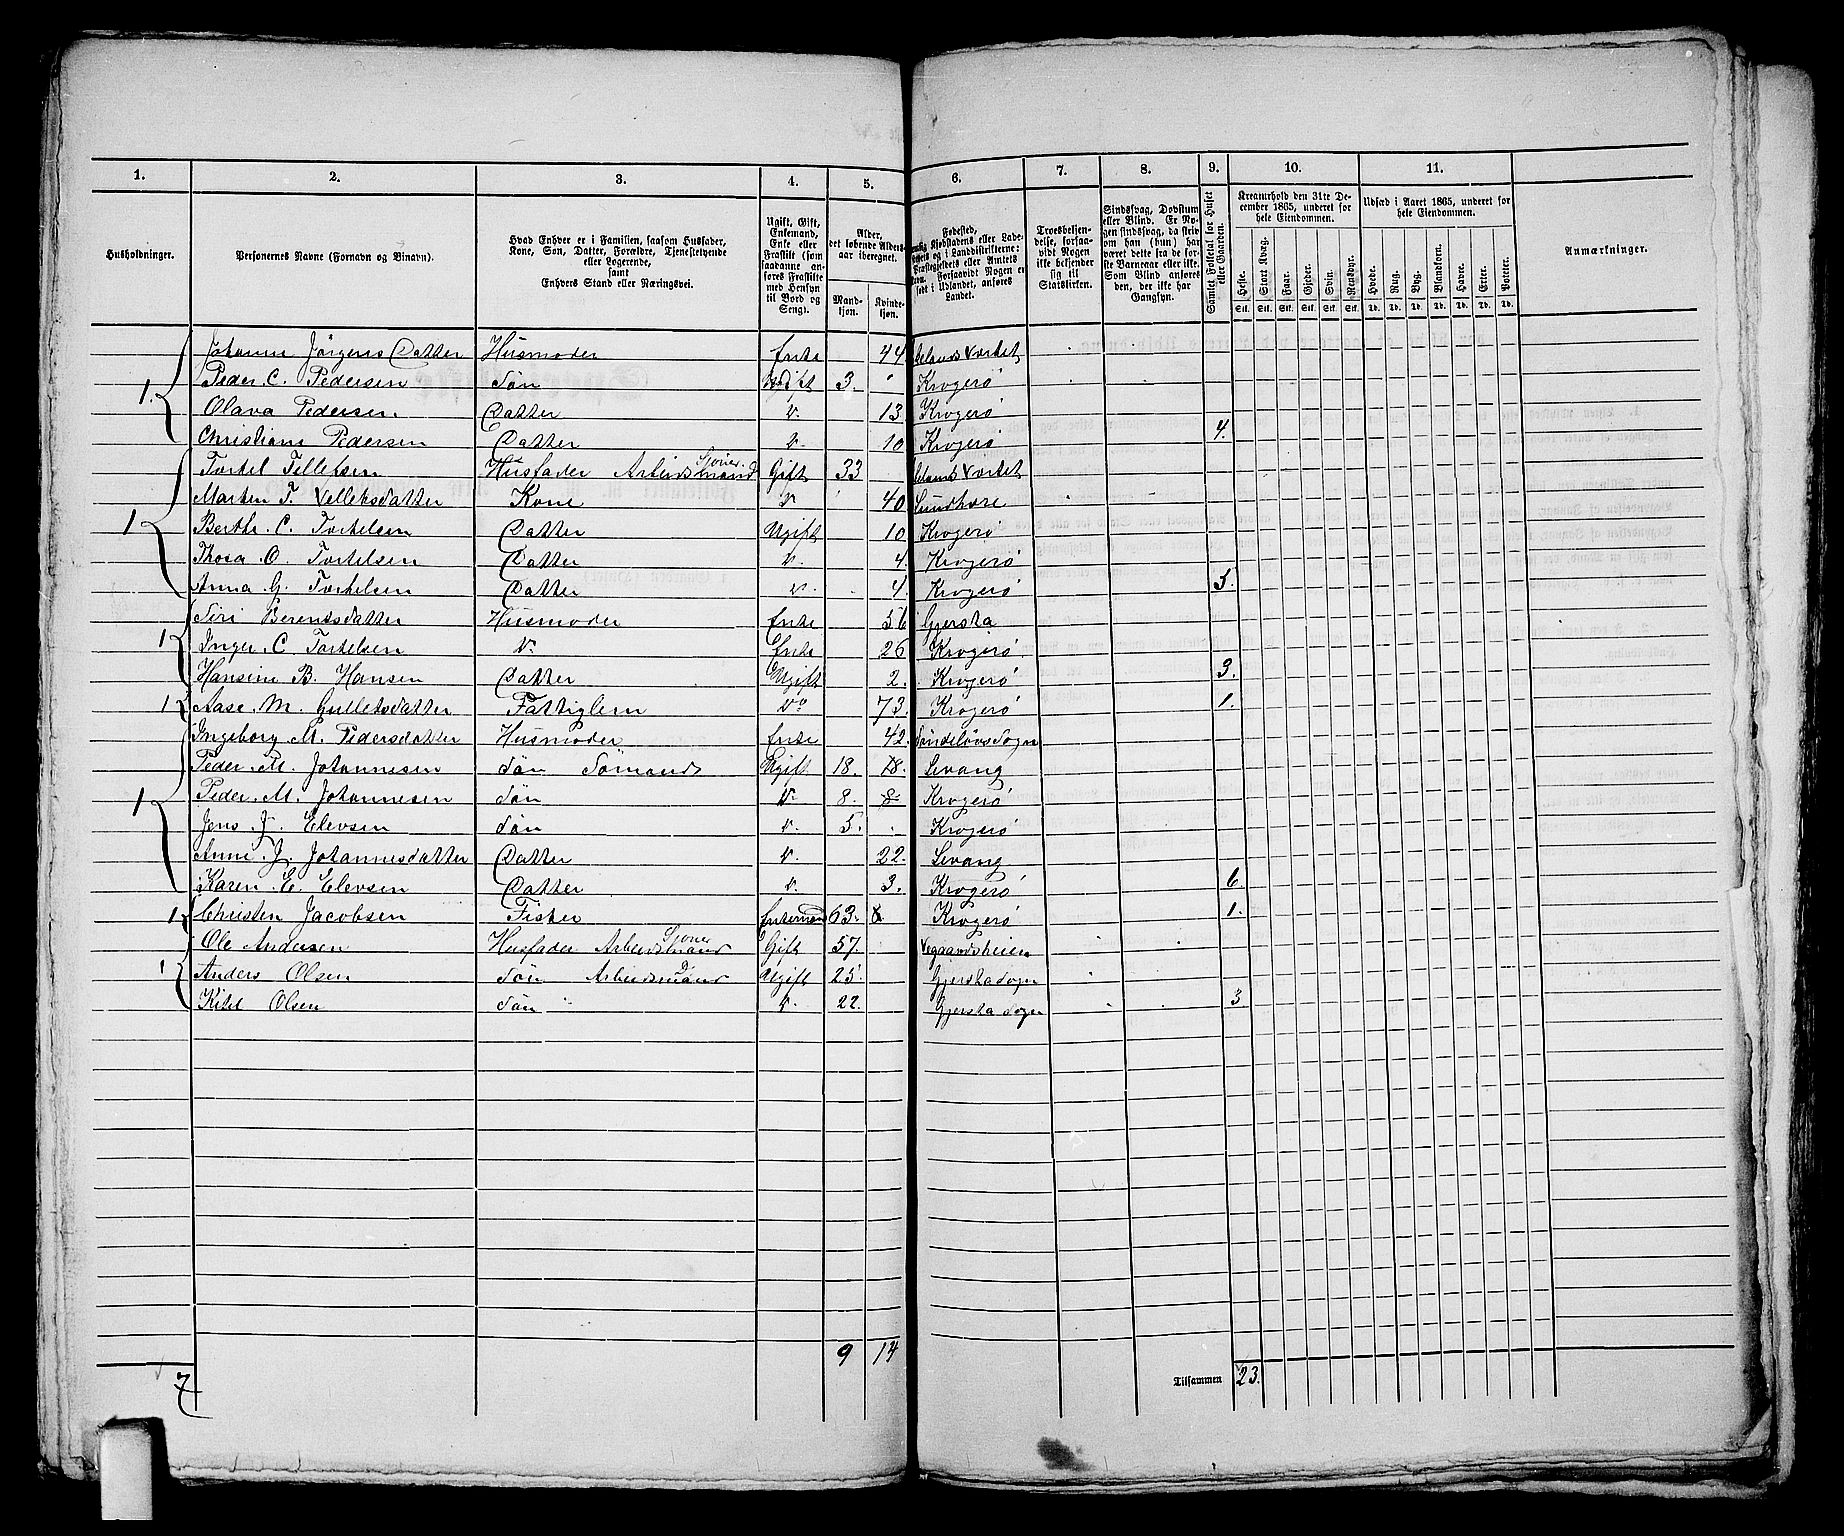 1. 2. 3. 4. 5. 6. 7. 8. 9. 10. 11.
Husholdninger. Personernes Navne (Fornavn og Binavn). Hvad Enhver er i Familien, saasom Husfader, Kone, Søn, Datter, Forældre, Tjenestetyende eller Logerende, samt Enhvers Stand eller Næringsvei. Ugift, Gift, Enkemand, Enke eller Fraskilt (som saadanne anføres Fraskilte med Hensyn til Bord og Seng). Alder, det løbende Aldersaar iberegnet. Mandkjøn. Kvindekjøn. Fødested, Kjøbstadens eller Ladestedets og i Landdistrikterne: Præstegjeldets eller Amtets Navn. Forsaavidt Nogen er født i Udlandet, anføres Landet. Troesbekjendelse, forsaavidt Nogen ikke bekjender sig til Statskirken. Sindssvag, Døvstum eller Blind. Er Nogen sindssvag, da skrives om han (hun) har været dette fra de første Barneaar eller ikke. Som Blind anføres den, der ikke har Gangsyn. Samlet Folketal for Huset eller Gaarden. Kreaturhold den 31te December 1865, underet for hele Eiendommen. Udsæd i Aaret 1865, underet for hele Eiendommen. Anmærkninger.
Heste. Stort Kvæg. Faar. Gjeder. Svin. Rensdyr. Hvede. Rug. Byg. Blandkorn. Havre. Erter. Poteter.
Stk. Stk. Stk. Stk. Stk. Stk. Td. Td. Td. Td. Td. Td. Td.
Johanne Jörgens Datter Husmoder Enke 44 Værket
1. Peder. C. Pedersen Sön Ugift 3. Krogerö
Olava Pedersen. Datter v. 13 Krogerö
Christiane Pedersen Datter v. 10 Krogerö 4.
Torkel Tellefsen Husfader Arbeidsmand Gift 33 Værket
Marken T. Velleksdatter Kone v 40
1 Berthe. C. Torkelsen Datter Ugift 10 Krogerö
Thora O. Torkelsen Datter v. 4. Krogerö
Anna G. Torkelsen Datter v. 4 Krogerö 5.
Siri Berentsdatter Husmoder Enke 56 Gjersta
1 Inger C Torkelsen v. Enke 26 Krogerö
Hansine B. Hansen Datter Ugift 2. Krogerö 3.
1 Aase. M. Gulleksdatter Fattiglem v. 73. Krogerö 1.
Ingeborg M. Pedersdatter Husmoder Enke 42. Söndelövs Sogn
Peder. M. Johannesen Sön Sömand Ugift 18. 18. Levang
1 Peder. M. Johannesen Sön v. 8. 8. Krogerö
Jens. J. Elevsen Sön v. 5. Krogerö
Anne. J. Johannesdatter Datter v. 22. Levang
Karen. E. Elevsen Datter v. 3. Krogerö 6
1 Christen Jacobsen Fisker Enkemand 63. Krogerö 1.
Ole Andersen Husfader Arbeidsmand Gift 57. Vegaardsheien
1 Anders Olsen Sön Arbeidsmand Ugift 25. Gjerstadogn
Kitel Olsen Sön v. 22. Gjersta Sogn 3.
9 14
7 Tilsammen 23.